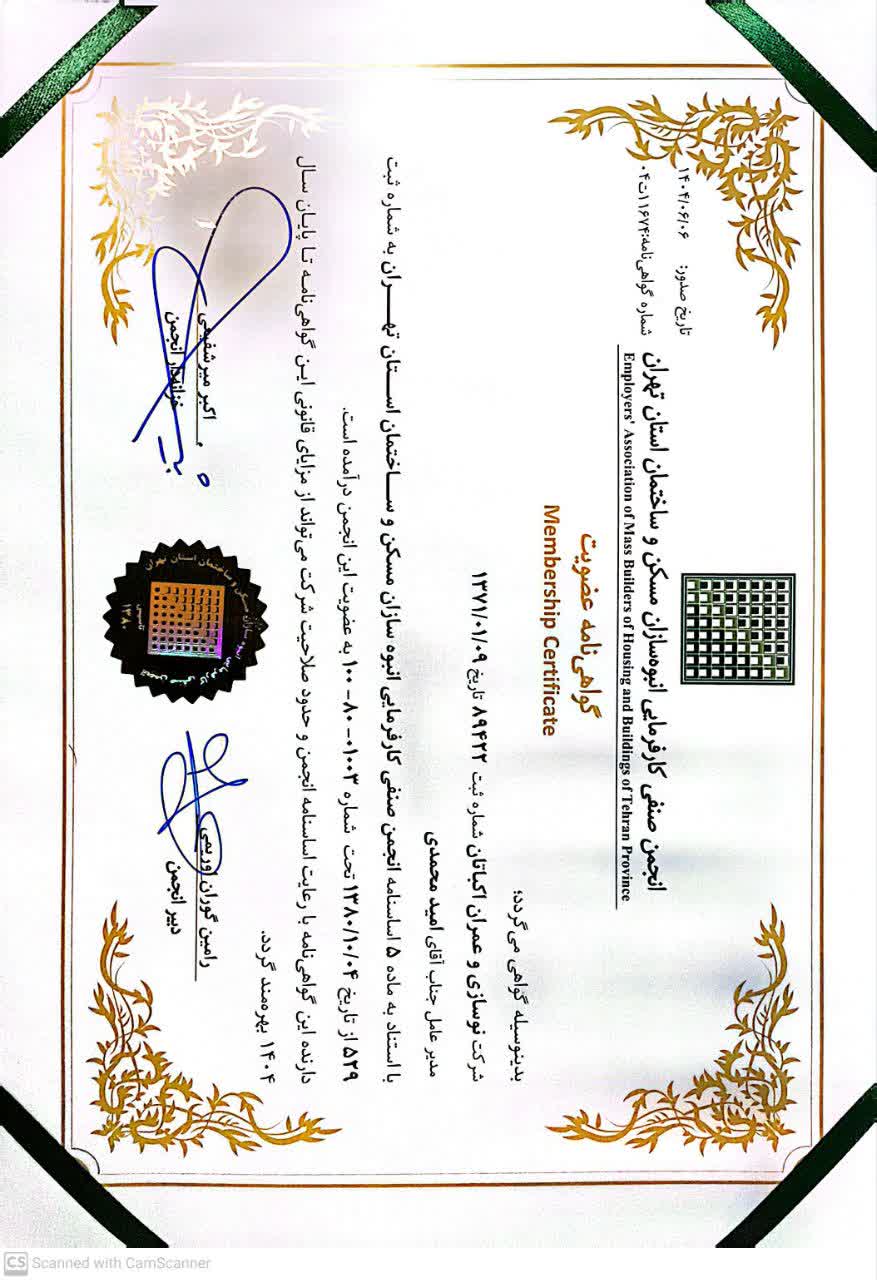 تاریخ صدور: ۱۴۰۴/۰۶/۰۶
شماره گواهی‌نامه: ۱۱۶۷۴ت۰۴
انجمن صنفی کارفرمایی انبوه‌سازان مسکن و ساختمان استان تهران
Employers' Association of Mass Builders of Housing and Buildings of Tehran Province
گواهی‌نامه عضویت
Membership Certificate
بدینوسیله گواهی می‌گردد:
شرکت نوسازی و عمران اکباتان شماره ثبت ۸۹۴۲۲ تاریخ ۱۳۷۱/۰۱/۰۹
مدیر عامل جناب آقای امید محمدی
با استناد به ماده ۵ اساسنامه انجمن صنفی کارفرمایی انبوه سازان مسکن و ساختمان استان تهران به شماره ثبت
۵۲۹ از تاریخ ۱۳۸۰/۱۰/۰۴ تحت شماره ۰۱۰۰۳-۸۰-۱۰۰ به عضویت این انجمن درآمده است.
دارنده این گواهی‌نامه با رعایت اساسنامه انجمن و حدود صلاحیت شرکت می‌تواند از مزایای قانونی این گواهی‌نامه تا پایان سال
۱۴۰۴ بهره‌مند گردد.
رامین گوران اوریمی
دبیر انجمن
اکبر میرشفیعی
خزانه‌دار انجمن
تاسیس
۱۳۸۰
CS Scanned with CamScanner